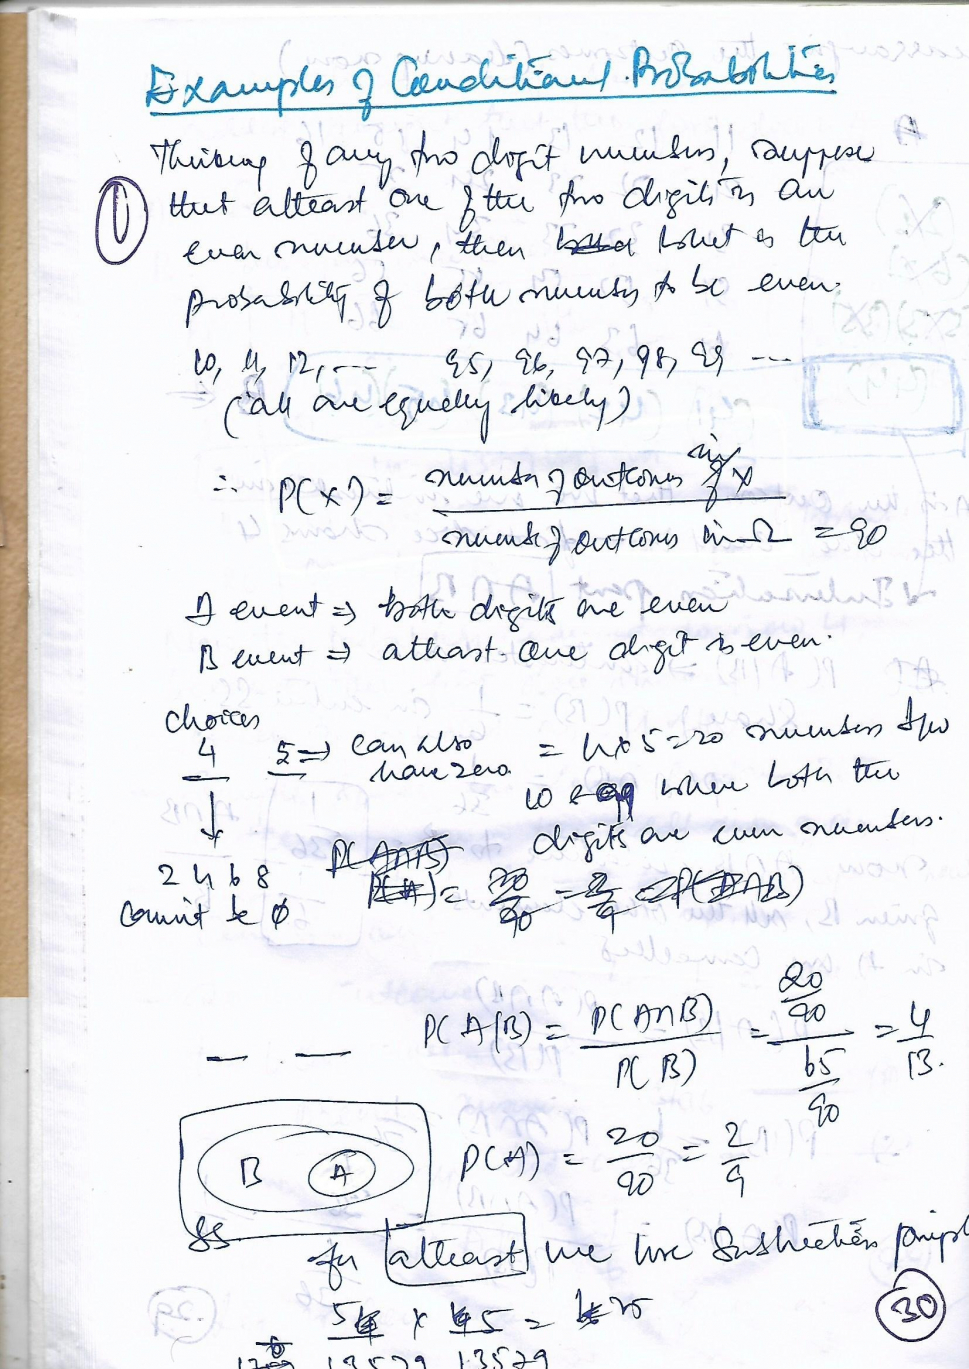 Examples of Conditional Probabilities
① Thinking of any two digit numbers, suppose
that atleast one of the two digits is an
even number, then what is the
probability of both numbers to be even.
10, 11, 12, ---- 95, 96, 97, 98, 99 ---
(all are equally likely)
∴ P(X) = number of outcomes in X / number of outcomes in Ω = 90
A event ⇒ both digits are even
B event ⇒ atleast one digit is even.
choices
4 5 ⇒ can also have zero. = 4x5=20 numbers from
10 & 99 where both the
digits are even numbers.
↓
2 4 6 8
cannot be 0
P(A∩B)
P(A) = 20/90 = 2/9 = P(A∩B)
P(A|B) = P(A∩B) / P(B) = (20/90) / (65/90) = 4/13.
B A
P(A) = 20/90 = 2/9
SS.
for atleast we use Subtraction
5 x 5 = 25
13579 13579
30